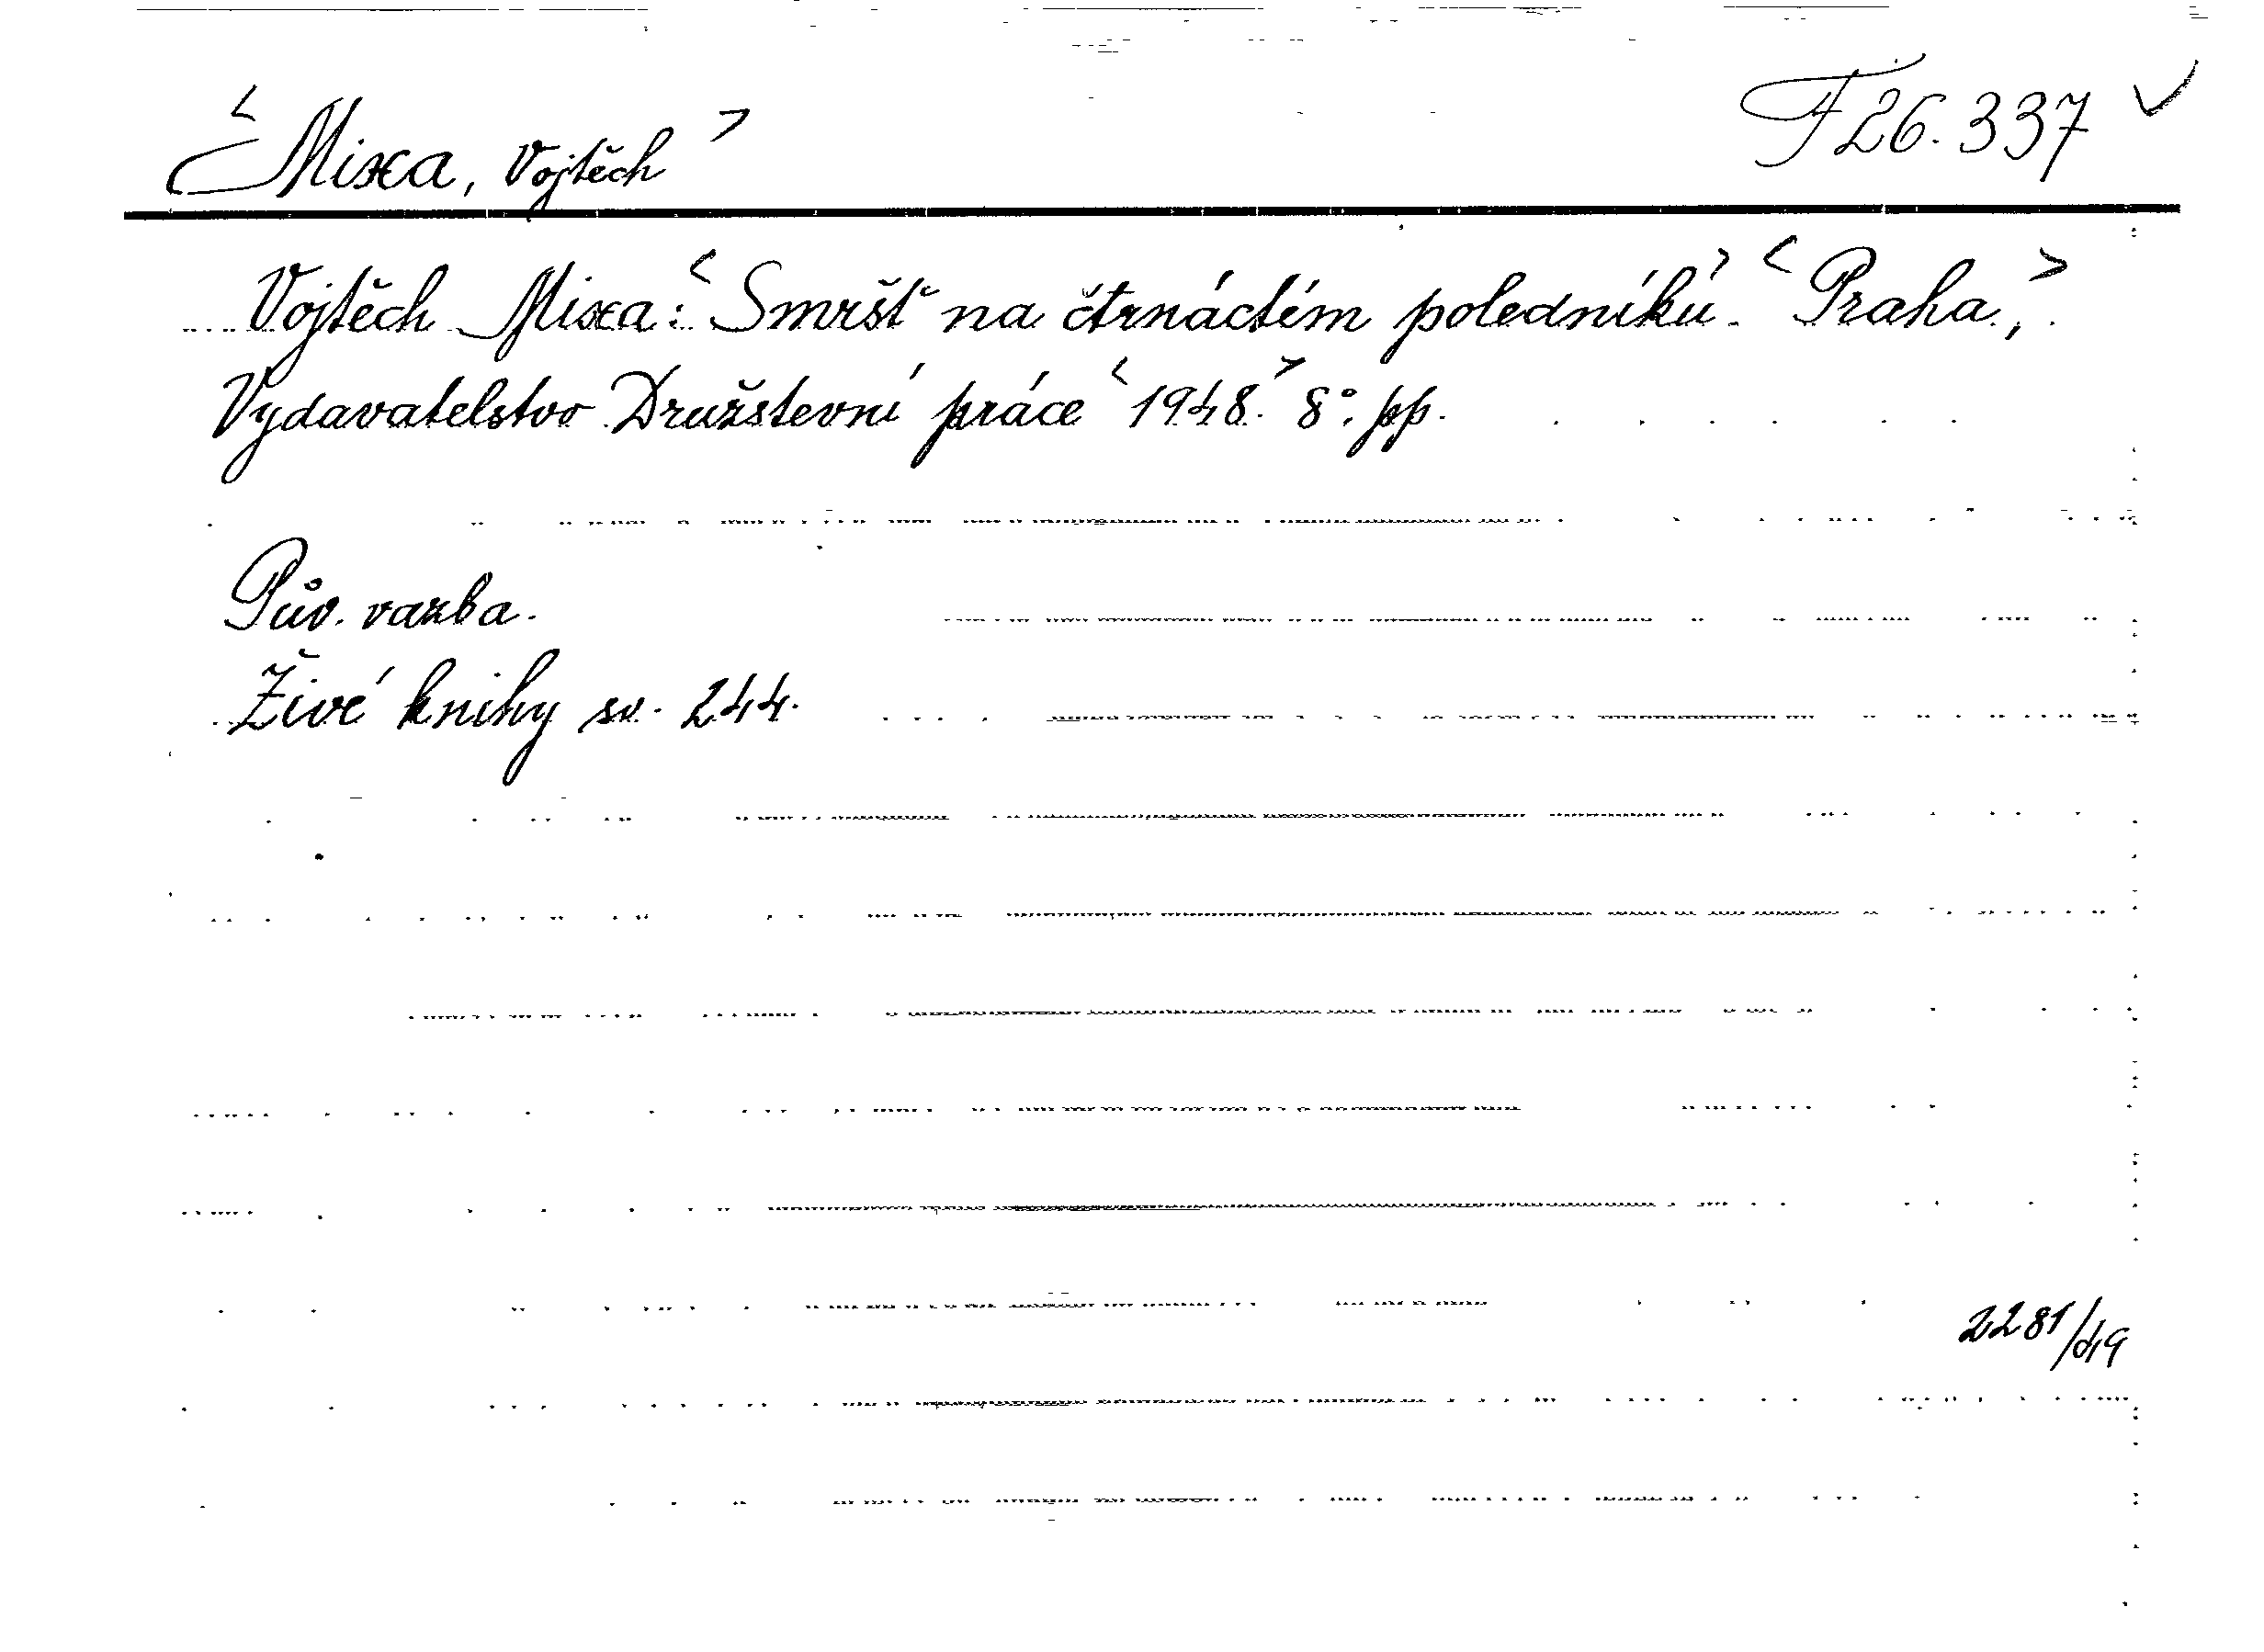 <Mixa, Vojtěch> F 26.337 ✓
Vojtěch Mixa: <Smršť na čtrnáctém poledníku>. <Praha,>
Vydavatelstvo Družstevní práce <1948.> 8°. pp.
Pův. vazba.
Živé knihy sv. 244.
2281/49